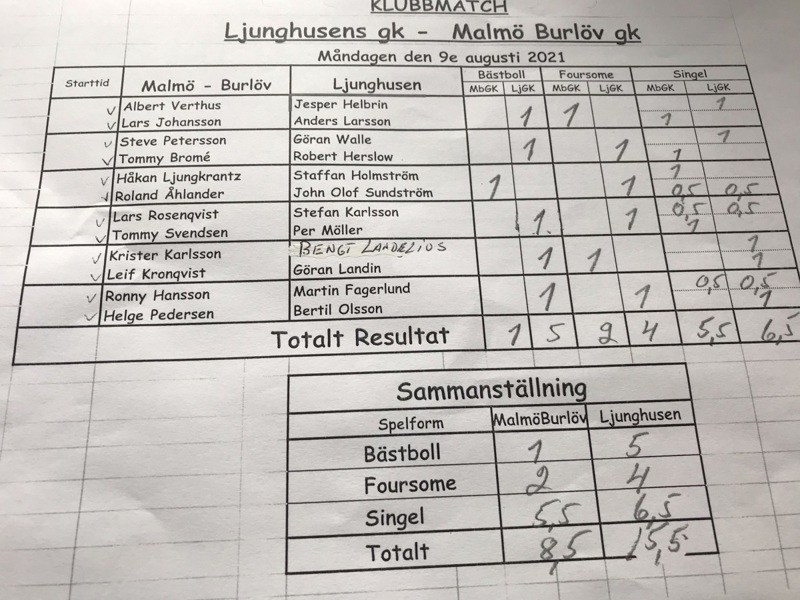 KLUBBMATCH
Ljunghusens gk - Malmö Burlöv gk
Måndagen den 9e augusti 2021
Starttid Malmö - Burlöv Ljunghusen Bästboll Foursome Singel
MbGK LjGK MbGK LjGK MbGK LjGK
Albert Verthus Jesper Helbrin 1
Lars Johansson Anders Larsson 1 1 1
Steve Petersson Göran Walle 1
Tommy Bromé Robert Herslow 1 1 1
Håkan Ljungkrantz Staffan Holmström 1
Roland Åhlander John Olof Sundström 1 1 0,5 0,5
Lars Rosenqvist Stefan Karlsson 0,5 0,5
Tommy Svendsen Per Möller 1 1 1
Krister Karlsson BENGT LANDELIUS 1
Leif Kronqvist Göran Landin 1 1 1
Ronny Hansson Martin Fagerlund 0,5 0,5
Helge Pedersen Bertil Olsson 1 1 1
Totalt Resultat 1 5 2 4 5,5 6,5
Sammanställning
Spelform MalmöBurlöv Ljunghusen
Bästboll 1 5
Foursome 2 4
Singel 5,5 6,5
Totalt 8,5 15,5